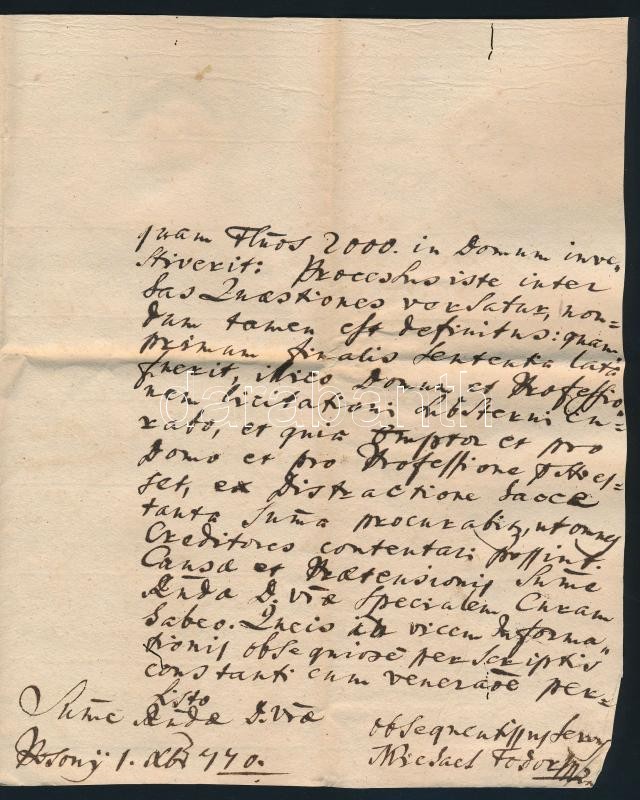 quam Flūos 2000. in Domum inve„
stiverit: Processus iste inter
has Quæstiones versatur, non=
dum tamen est definitus: quam
primum finalis Sententia lata
fuerit, illico Domum et Professio
nem licitationi substerni cu=
rabo, et quia Emptor et pro
Domo et pro Professione
set, ex Distractione hacce
tanta Suma procurabitr, ut omnes
Creditores contentari possint.
Causæ et Prætensionis Sume
Rndæ D. Vræ specialem Curam
habeo. Queis in vicem Informa„
tionis obsequiose perscriptis
constanti cum veneraōe per=
sisto
Sume Rndæ D. Vræ
obsequentissus servus
Michael Fodor
Posonij 1. Xbr 770.
darabanth